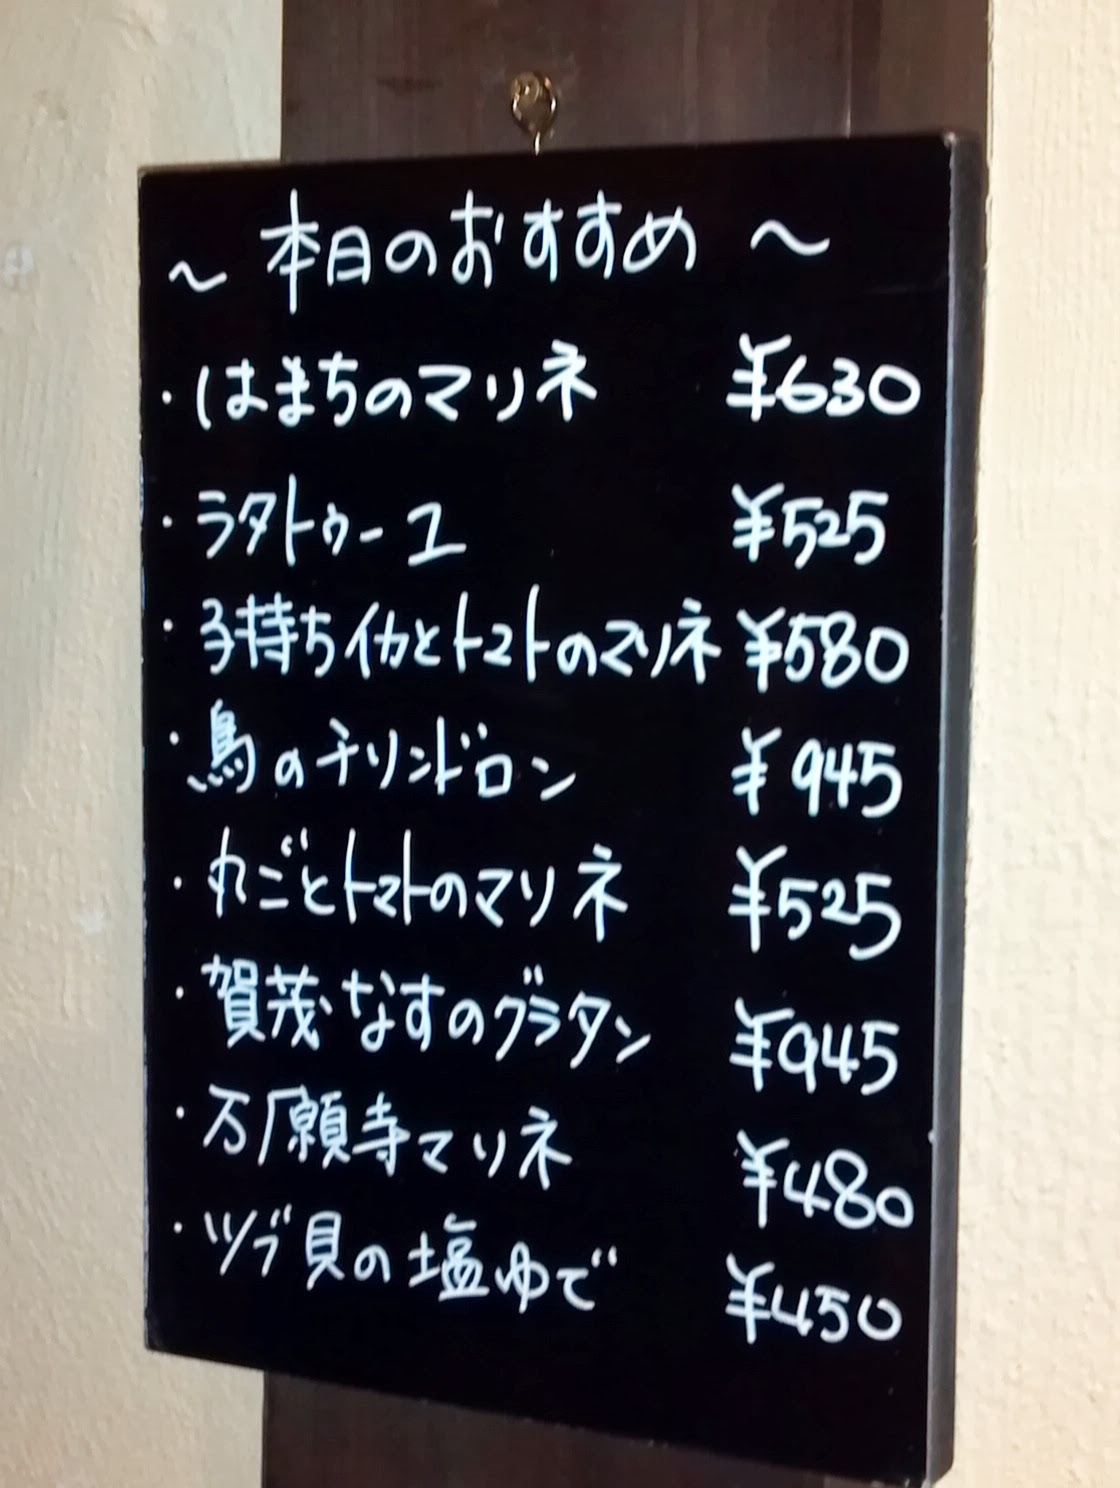 ～ 本日のおすすめ ～
・はまちのマリネ ¥630
・ラタトゥーユ ¥525
・子持ちイカとトマトのマリネ ¥580
・鳥のチリンドロン ¥945
・丸ごとトマトのマリネ ¥525
・賀茂なすのグラタン ¥945
・万願寺マリネ ¥480
・ツブ貝の塩ゆで ¥450